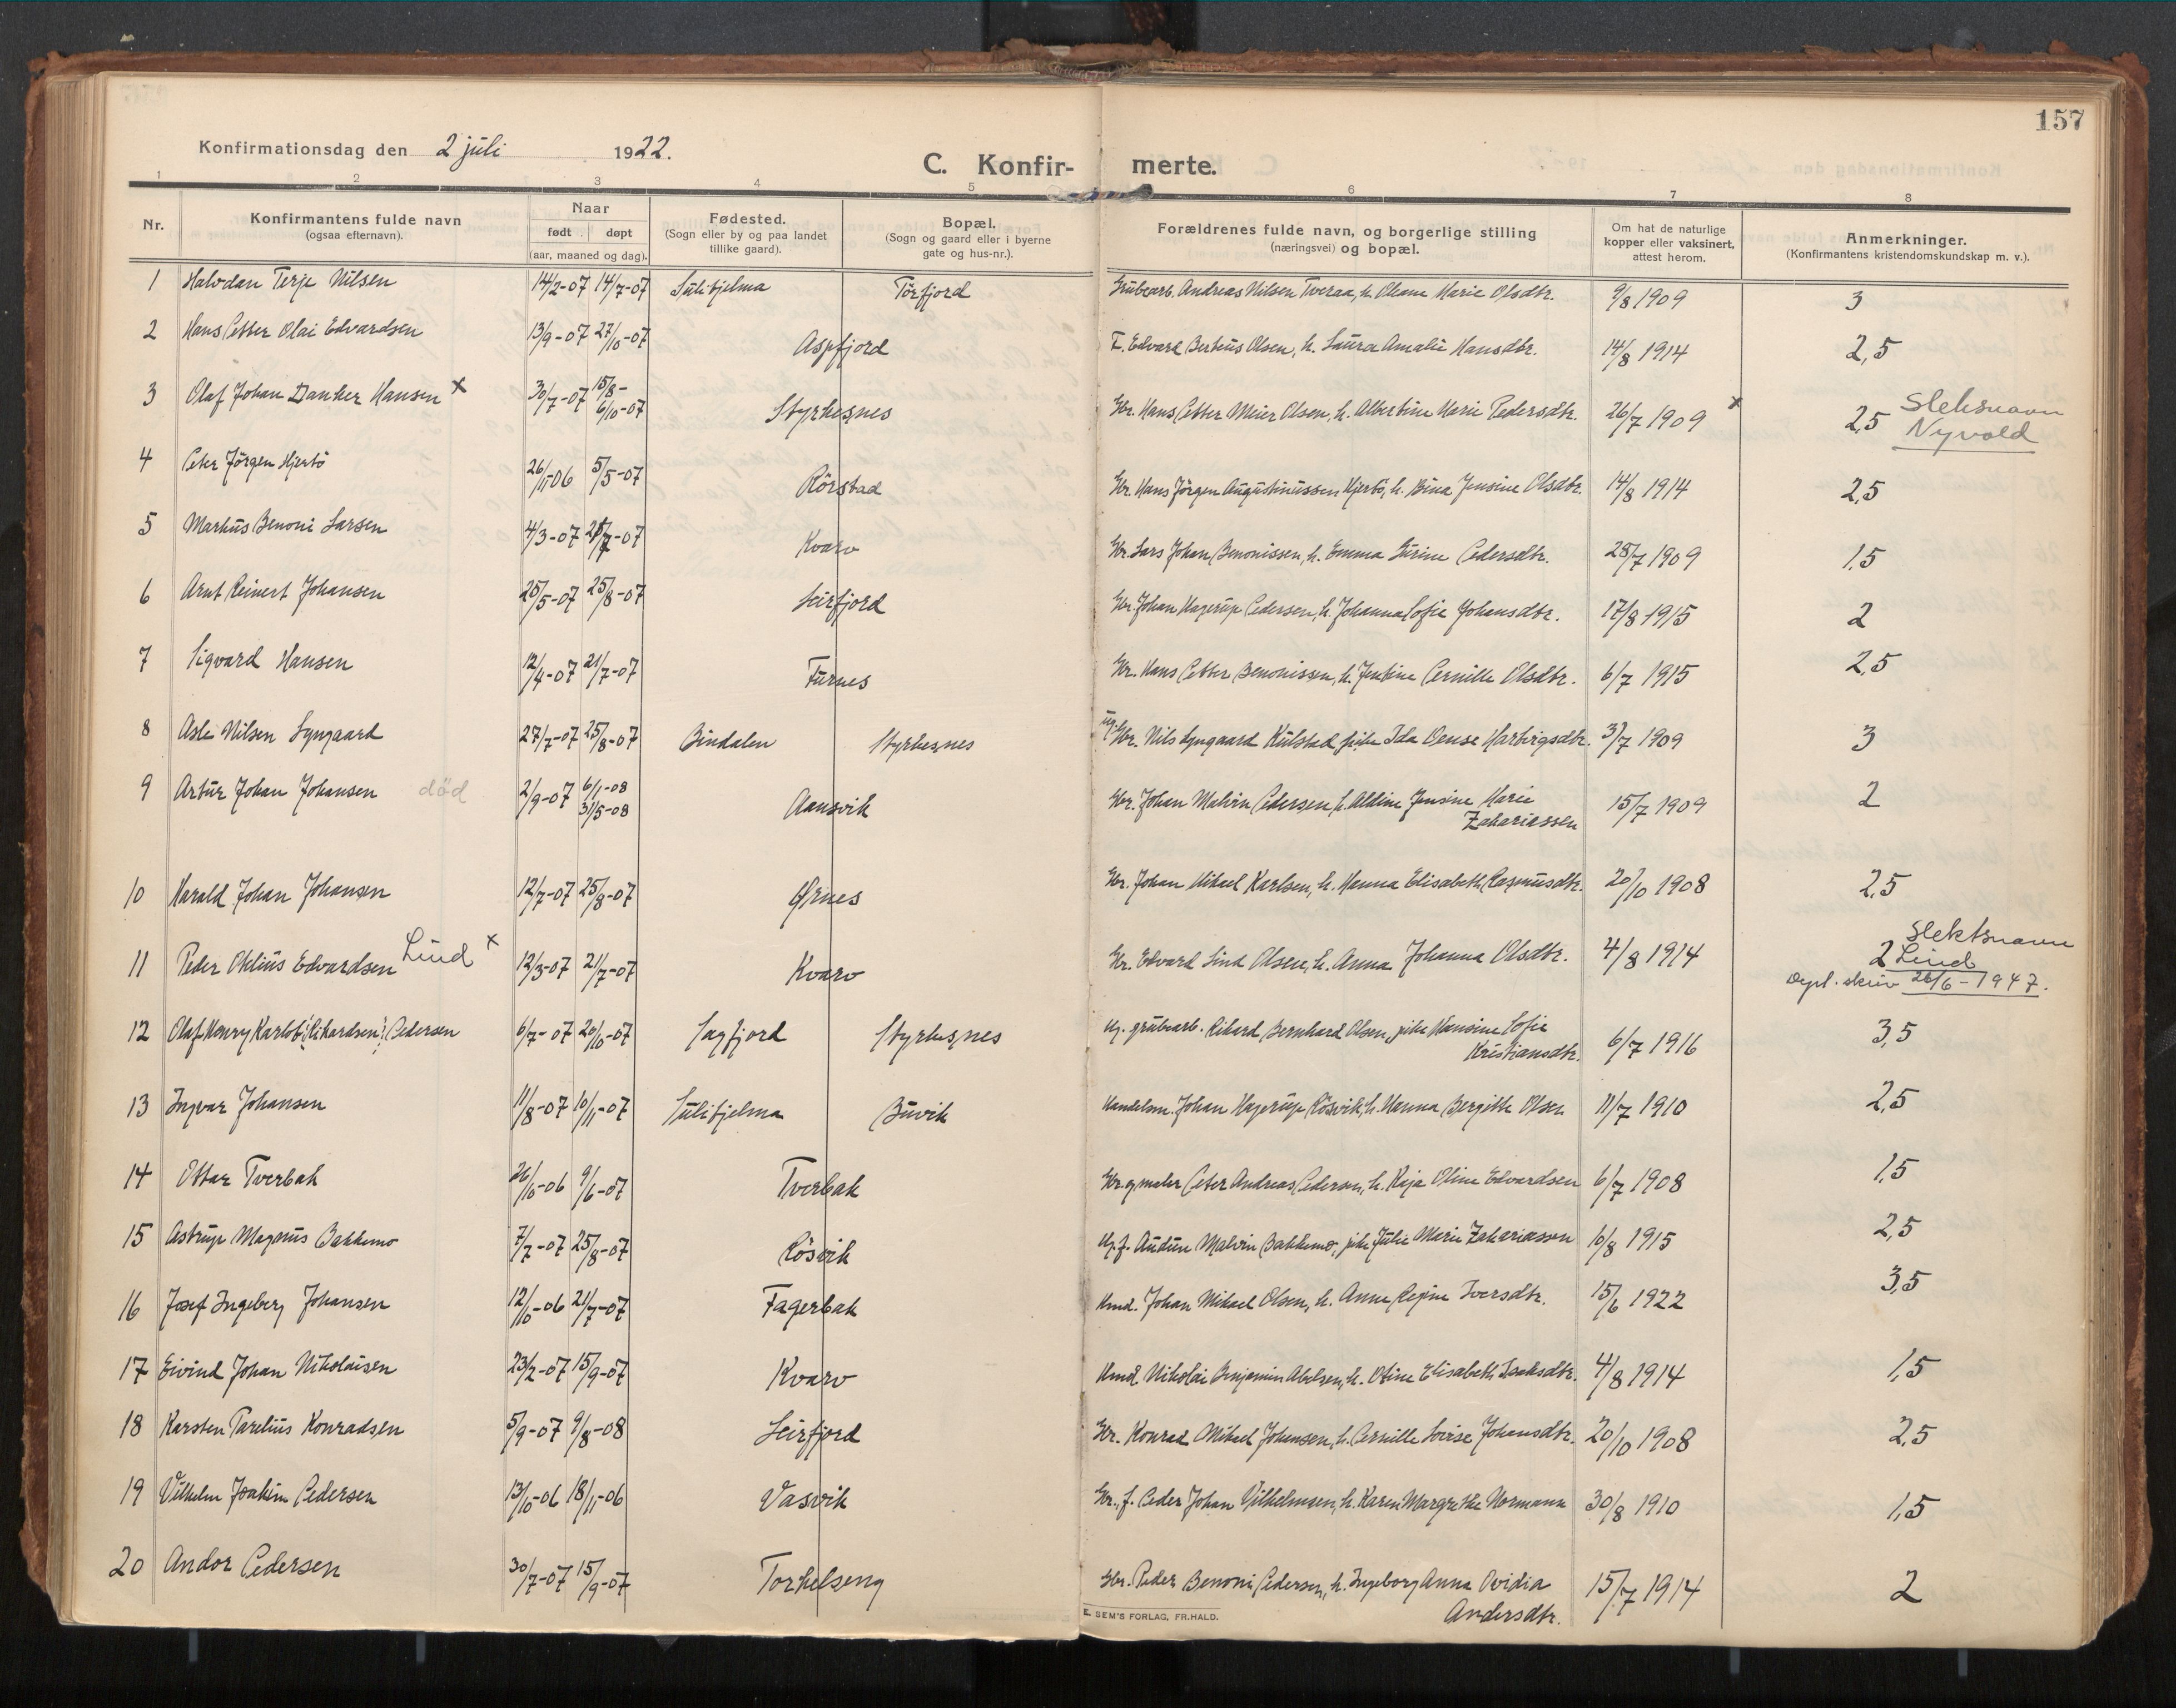 157
Konfirmationsdag den 2 juli 1922.
C. Konfir- merte.
1 2 3 4 5 6 7 8
Nr.
Konfirmantens fulde navn
(ogsaa efternavn).
Naar
født døpt
(aar, maaned og dag).
Fødested.
(Sogn eller by og paa landet
tillike gaard).
Bopæl.
(Sogn og gaard eller i byerne
gate og hus-nr.).
Forældrenes fulde navn, og borgerlige stilling
(næringsvei) og bopæl.
Om hat de naturlige
kopper eller vaksinert,
attest herom.
Anmerkninger.
(Konfirmantens kristendomskundskap m. v.).
1 Halvdan Terje Nilsen 14/2-07 14/7-07 Sulitjelma Torfjord Grubearb. Andreas Nilsen Tveraa, h. Oleane Marie Olsdtr. 9/8 1909 3
2 Hans Petter Olai Edvardsen 13/9-07 27/10-07 Aspfjord F. Edvard Berteus Olsen, h. Laura Amalie Hansdtr. 14/8 1914 2,5
3 Olaf Johan Danker Hansen x 30/7-07 15/8- Styrkesnes Gbr. Hans Petter Meier Olsen, h. Albertine Marie Pedersdtr. 26/7 1909 x 2,5 Slektsnavn
6/10-07 Nyvold
4 Peter Jörgen Hjertö 26/11-06 5/5-07 Rörstad Gbr. Hans Jörgen Augustinussen Hjertö, h. Bina Jensine Olsdtr. 14/8 1914 2,5
5 Markus Benoni Larsen 4/3-07 21/7-07 Kvarv Gbr. Lars Johan Benonissen, h. Emma Gurine Pedersdtr. 28/7 1909 1,5
6 Arnt Reinert Johansen 25/5-07 25/8-07 Leirfjord Gbr. Johan Hagerup Pedersen, h. Johanna Sofie Johansdtr. 17/8 1915 2
7 Sigvard Hansen 12/4-07 21/7-07 Furnes Gbr. Hans Petter Benonissen, h. Jentine Pernille Olsdtr. 6/7 1915 2,5
8 Asle Nilsen Lyngaard 27/7-07 25/8-07 Bindalen Styrkesnes ug. Gbr. Nils Lyngaard Kulstad, pike Ida Oense 3/7 1909 3
9 Artur Johan Johansen död 2/9-07 6/1-08 Aansvik Gbr. Johan Malvin Pedersen, h. Aldine Jensine Marie 15/7 1909 2
31/5-08 Zakariassen
10 Harald Johan Johansen 12/7-07 25/8-07 Ørnes Gbr. Johan Mikael Karlsen, h. Hanna Elisabeth Rasmusdtr. 20/10 1908 2,5
11 Peder Oklius Edvardsen Lind x 12/3-07 21/7-07 Kvarv Gbr. Edvard Lind Olsen, h. Anna Johanna Olsdtr. 4/8 1914 2 Slektsnavn
Lind
Oppl. skriv 26/6-1947.
12 Olaf Henry Karlot (: Rikardsen :) Pedersen 6/7-07 20/10-07 Sagfjord Styrkesnes Ug. grubearb. Rikard Bernhard Olsen, pike Hansine Sofie 6/7 1916 3,5
Kristiansdtr.
13 Ingvar Johansen 11/8-07 10/11-07 Sulitjelma Buvik Handelsm. Johan Hagerup Rösvik, h. Hanna Bergitte Olsen 11/7 1910 2,5
14 Ottar Tverbak 26/10-06 9/6-07 Tverbak Gbr. og maler Peter Andreas Pedersen, h. Kaja Oline Edvardsen 6/7 1908 1,5
15 Astrup Magnus Bakkemo 7/7-07 25/8-07 Rösvik Ug. f. Audun Malvin Bakkemo, pike Julie Marie Zakariassen 16/8 1915 2,5
16 Josef Ingeberg Johansen 12/10-06 21/7-07 Fagerbak Hmd. Johan Mikael Olsen, h. Anne Regine Iversdtr. 15/6 1922 3,5
17 Eivind Johan Nikolaisen 23/2-07 15/9-07 Kvarv Hmd. Nikolai Benjamin Abelsen, h. Otine Elisabeth Isaksdtr. 4/8 1914 1,5
18 Karsten Parelius Konradsen 5/9-07 9/8-08 Leirfjord Gbr. Konrad Mikael Johansen, h. Pernille Lovise Johansdtr. 20/10 1908 2,5
19 Vilhelm Joakim Pedersen 13/10-06 18/11-06 Vasvik Gbr., f. Peder Johan Vilhelmsen, h. Karen Margrethe Normann 30/8 1910 1,5
20 Andor Pedersen 30/7-07 15/9-07 Torkelseng Gbr. Peder Benoni Pedersen, h. Ingeborg Anna Ovidia 15/7 1914 2
Andersdtr.
E. SEM'S FORLAG, FR.HALD.